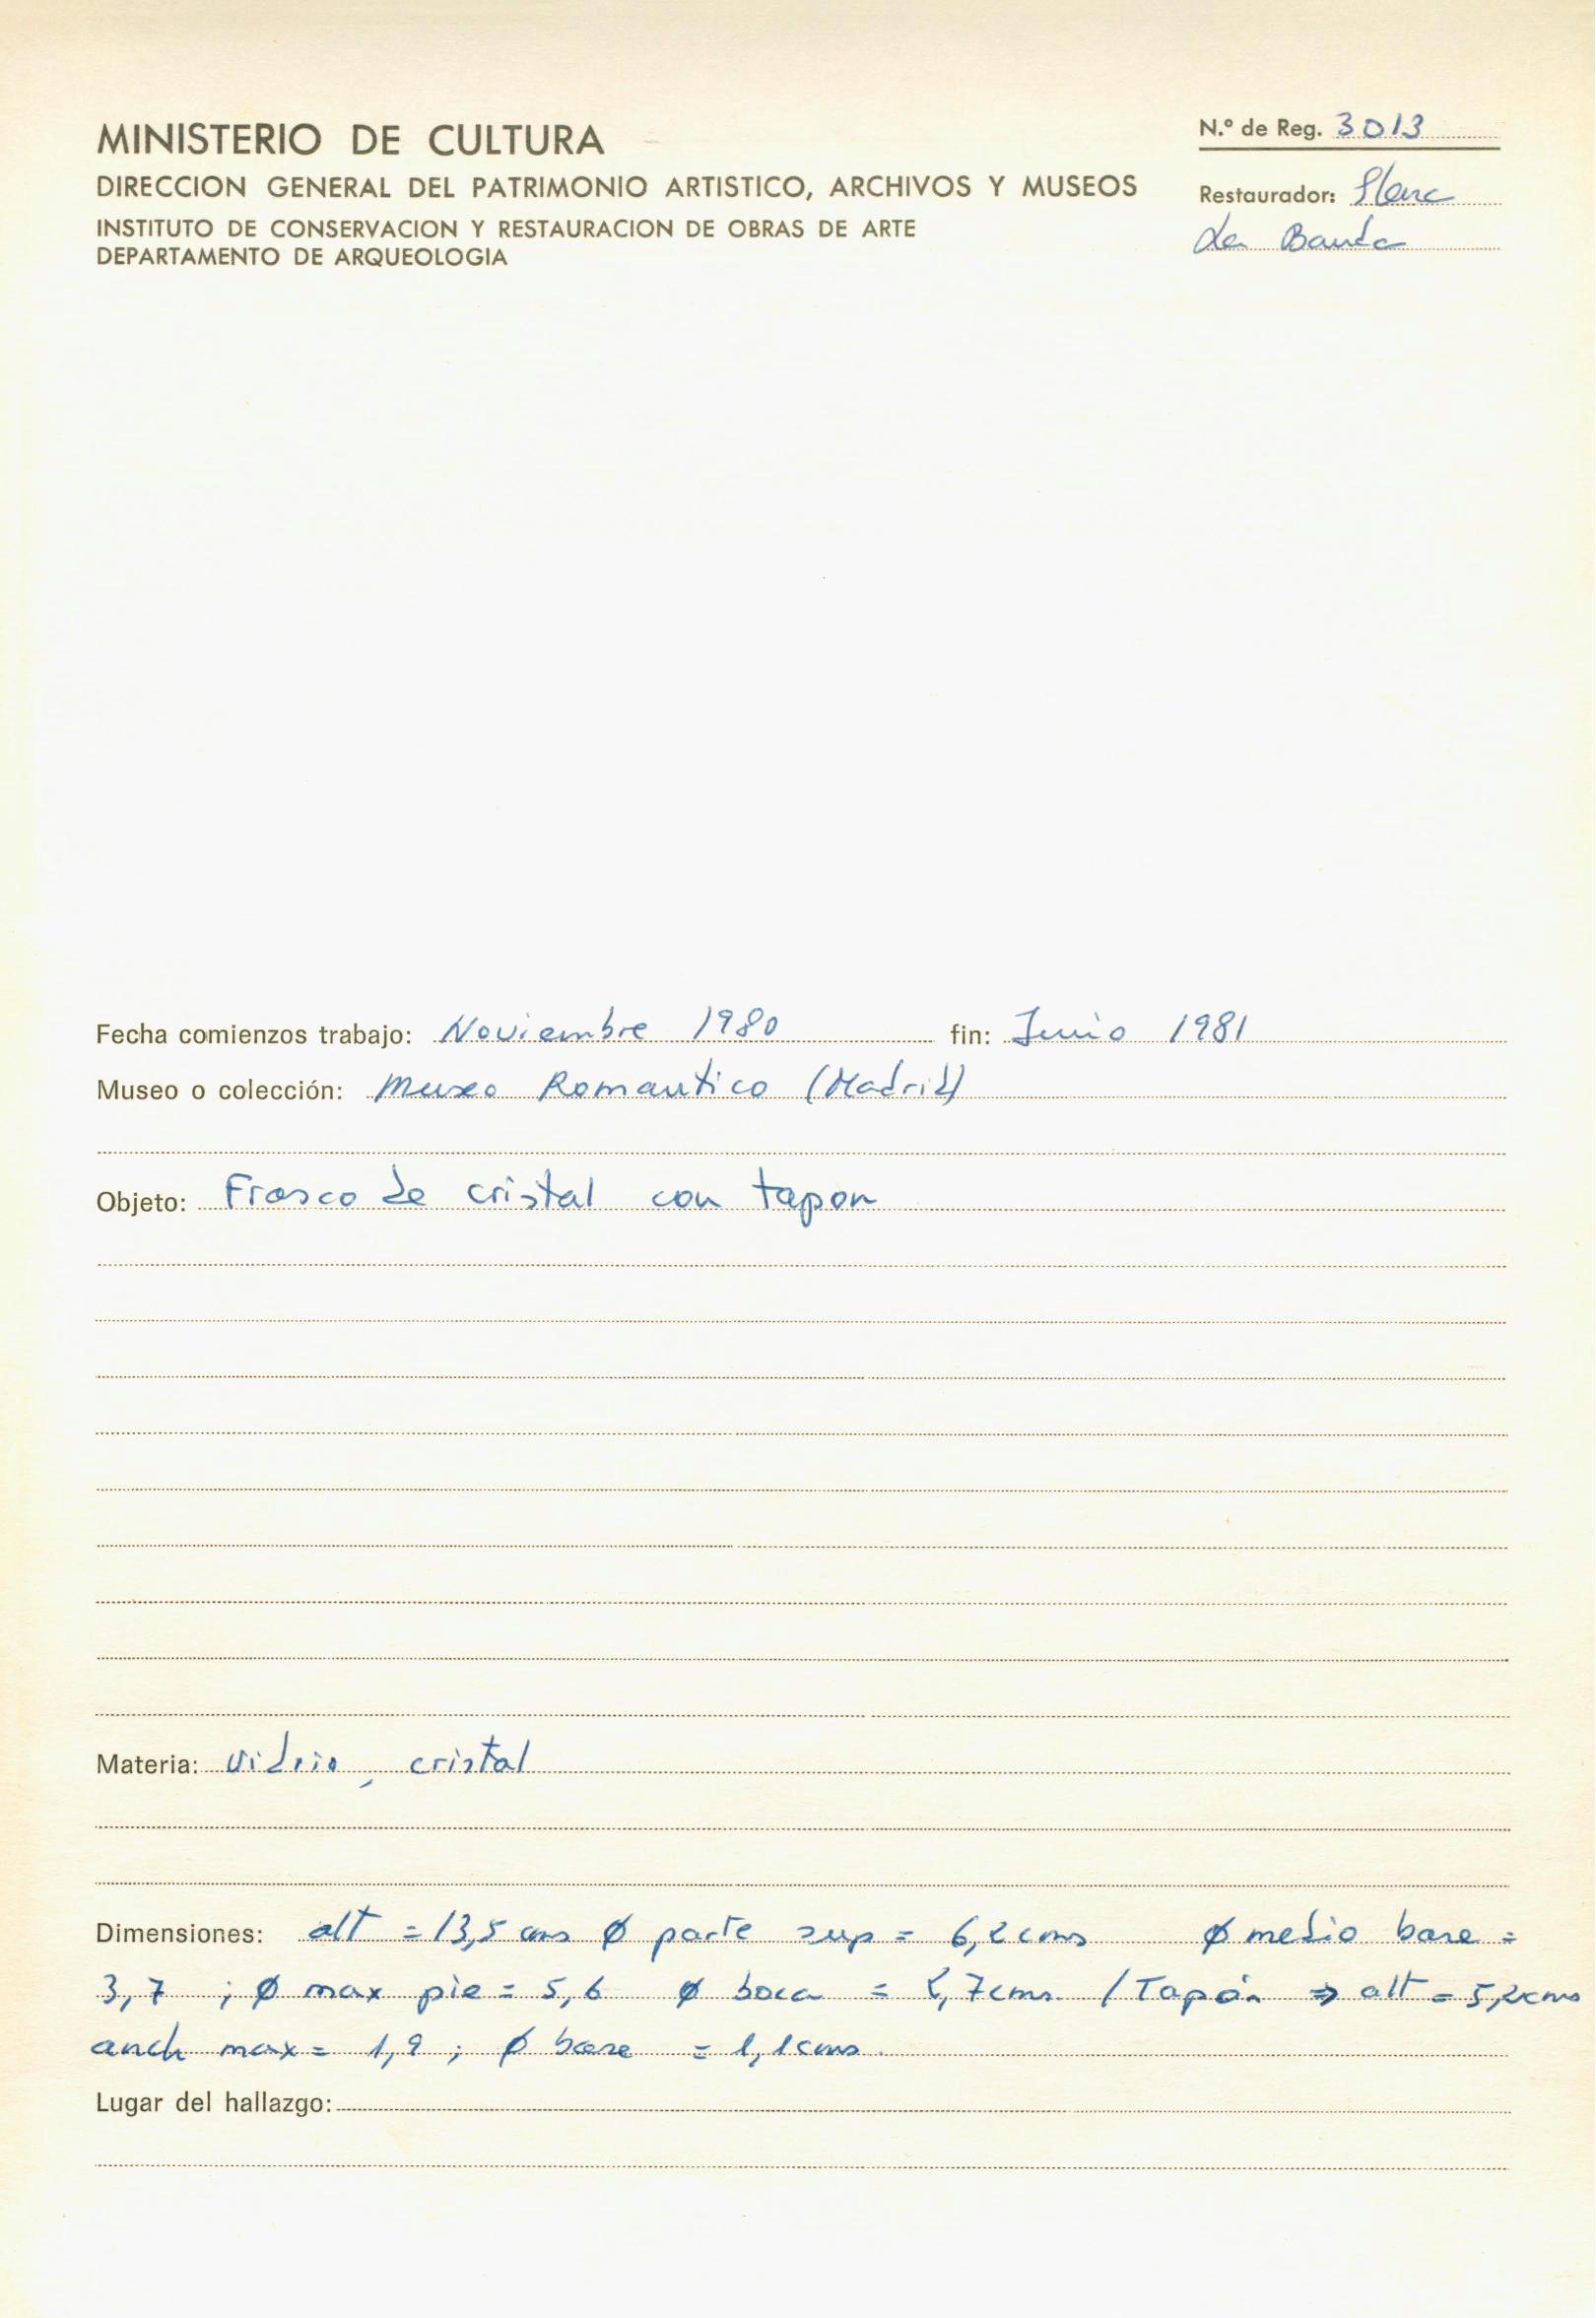 MINISTERIO DE CULTURA
DIRECCION GENERAL DEL PATRIMONIO ARTISTICO, ARCHIVOS Y MUSEOS
INSTITUTO DE CONSERVACION Y RESTAURACION DE OBRAS DE ARTE
DEPARTAMENTO DE ARQUEOLOGIA
N.º de Reg. 3013
Restaurador:
La Banda
Fecha comienzos trabajo: Noviembre 1980 fin: Junio 1981
Museo o colección: Museo Romantico (Madrid)
Objeto: Frasco de cristal con tapon
Materia: vidrio, cristal
Dimensiones: alt = 13,5 cms ø parte sup = 6,2 cms ø medio base =
3,7 ; ø max pie = 5,6 ø boca = 2,7 cms. / Tapón ⇒ alt = 5,2 cms
anch max = 1,9 ; ø base = 1,1 cms.
Lugar del hallazgo: